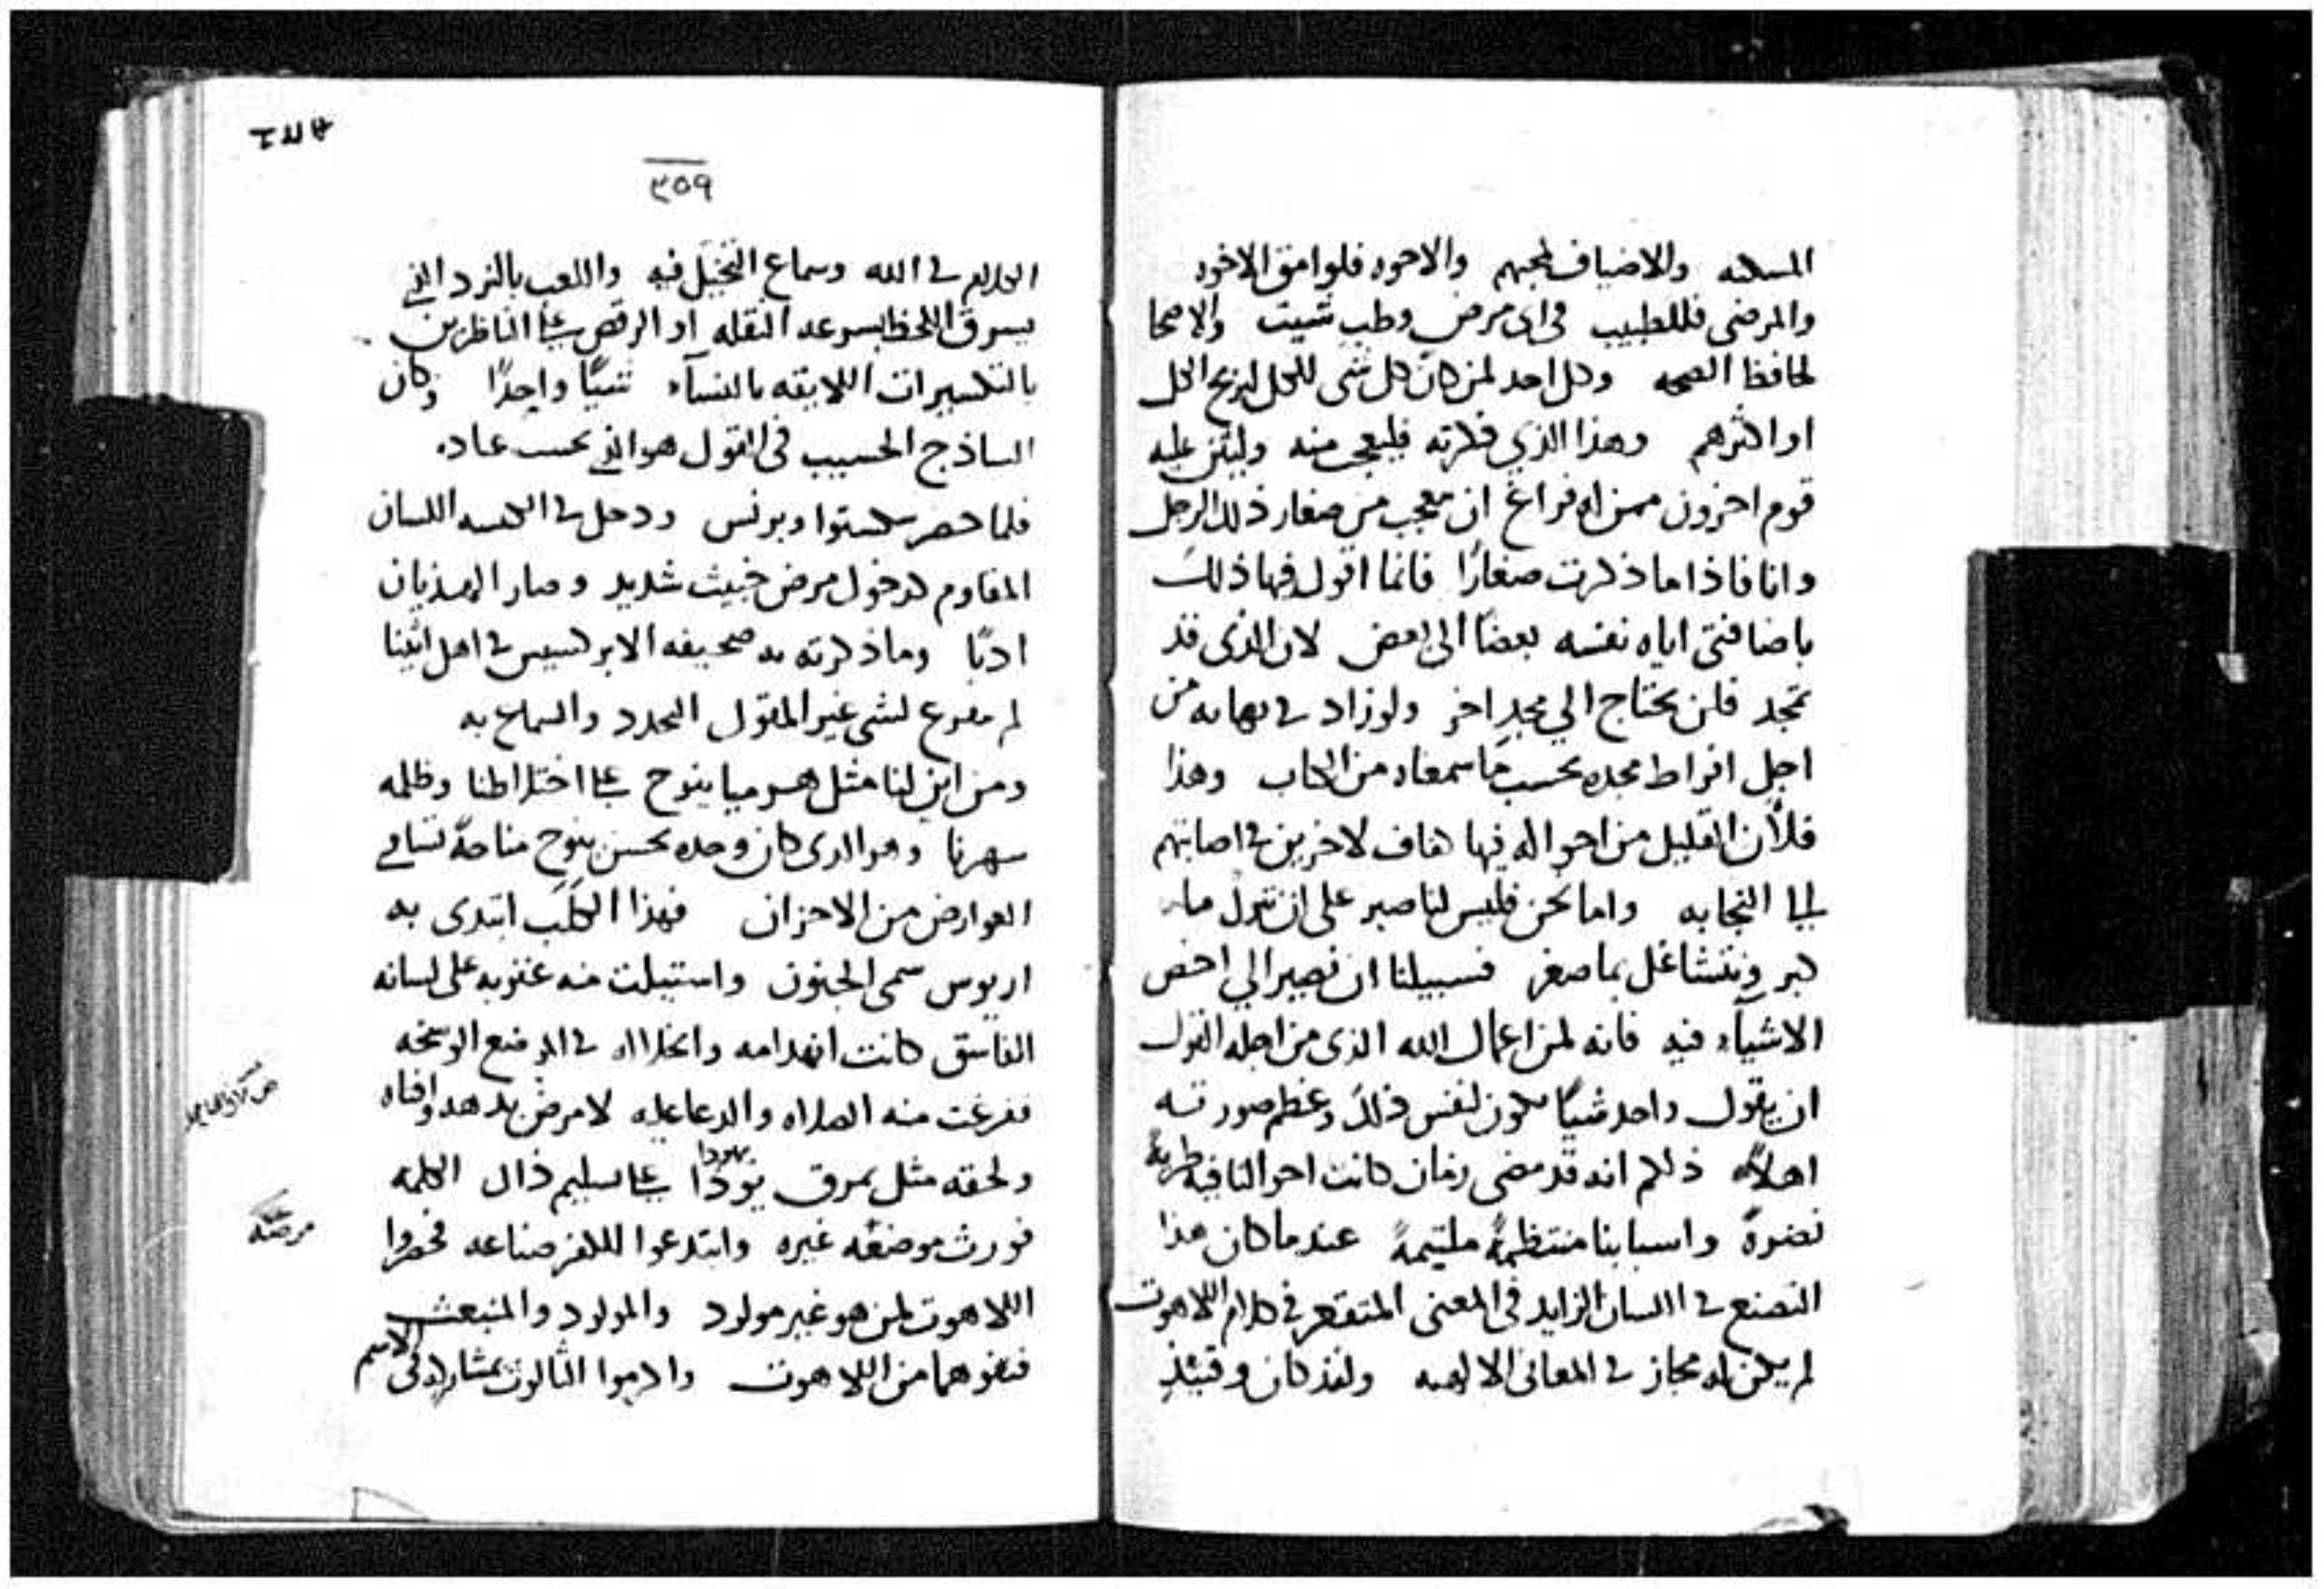 والاضياف لمحبهم والاخوه فلوامق الاخوه
والمرضى فللطبيب في اى مرض وطب شيت والاصحا
لحافظ الصحه وكل احد لمن كان كل شى للكل ليربح الكل
او اكثرهم وهذا الذي فليعجب منه وليثن عليه
قوم اخرون ممن له فراغ ان يعجب من صغار ذلك الرجل
وانا فاذا ما ذكرت صغارًا فانما اقول فيها ذلك
باضافتى اياه نفسه بعضًا الى بعض لان الذى قد
تمجد فلن يحتاج الي مجد اخر ولو زاد في بهايه من
اجل افراط مجده بحسب ما سمعناه من الكتاب وهذا
فلأن القليل من احواله فيها كاف لاخرين في اصابتهم
النجابه واما نحن فليس لنا صبر على ان نترك ما
كبر ونتشاغل بما صغر فسبيلنا ان نصير الي اخص
الاشيآء فيه فانه لمن اعمال الله الذى من اجله القول
ان يقول واحد شيًا يكون لنفس ذلك وعظم صورته
اهلاً ذلكم انه قد مضى زمان كانت احوالنا فيه طريةً
نضرةً واسبابنا منتظمةً ملتيمةً عندما كان هذا
التصنع في اللسان الزايد في المعنى المتقعر في كلام اللاهوت
لم يكن له مجاز في المعانى الالهيه ولقد كان وقتيذٍ
٣٥٩
الكلام في الله وسماع التخيّل فيه واللعب بالنرد الذي
يسرق اللحظ بسرعه النقله او الرقص على الناظرين
بالتكسيرات اللايقه بالنسآء شيًا واحدًا وكان
الساذج الحسيب في القول هو الذي يحسب عباده
فلما حضر سكستوا وبرنس ودخل في الكنيسه اللسان
المقاوم كدخول مرض خبيث شديد وصار الهذيان
ادبًا وما ذكرته صحيفه الابركسيس في اهل اثينا
لم نفرغ لشى غير المقول المجدد والسماع به
ومن اين لنا مثل هرميا ينوح على اختلاطنا وظلمه
سهرنا وهو الذى كان وحده يحسن ينوح مناحةً تساوي
العوارض من الاحزان فهذا الكَلَب ابتدى به
اريوس سمى الجنون واستيلت منه عقوبه على لسانه
الفاسق كانت انهدامه وانحلاله في المواضع الوسخه
ففرغت منه الصلاه والدعا عليه لا مرض
ولحقه مثل تمزق يوذا على تسليم ذاك الكلمه
يهودا
فورث موضعه غيره وابتدعوا للكفر صناعه فحصروا
اللاهوت لمن هو غير مولود والمولود والمنبعث
فنفوهما من اللاهوت واكرموا الثالوث بمشاركه في الاسم